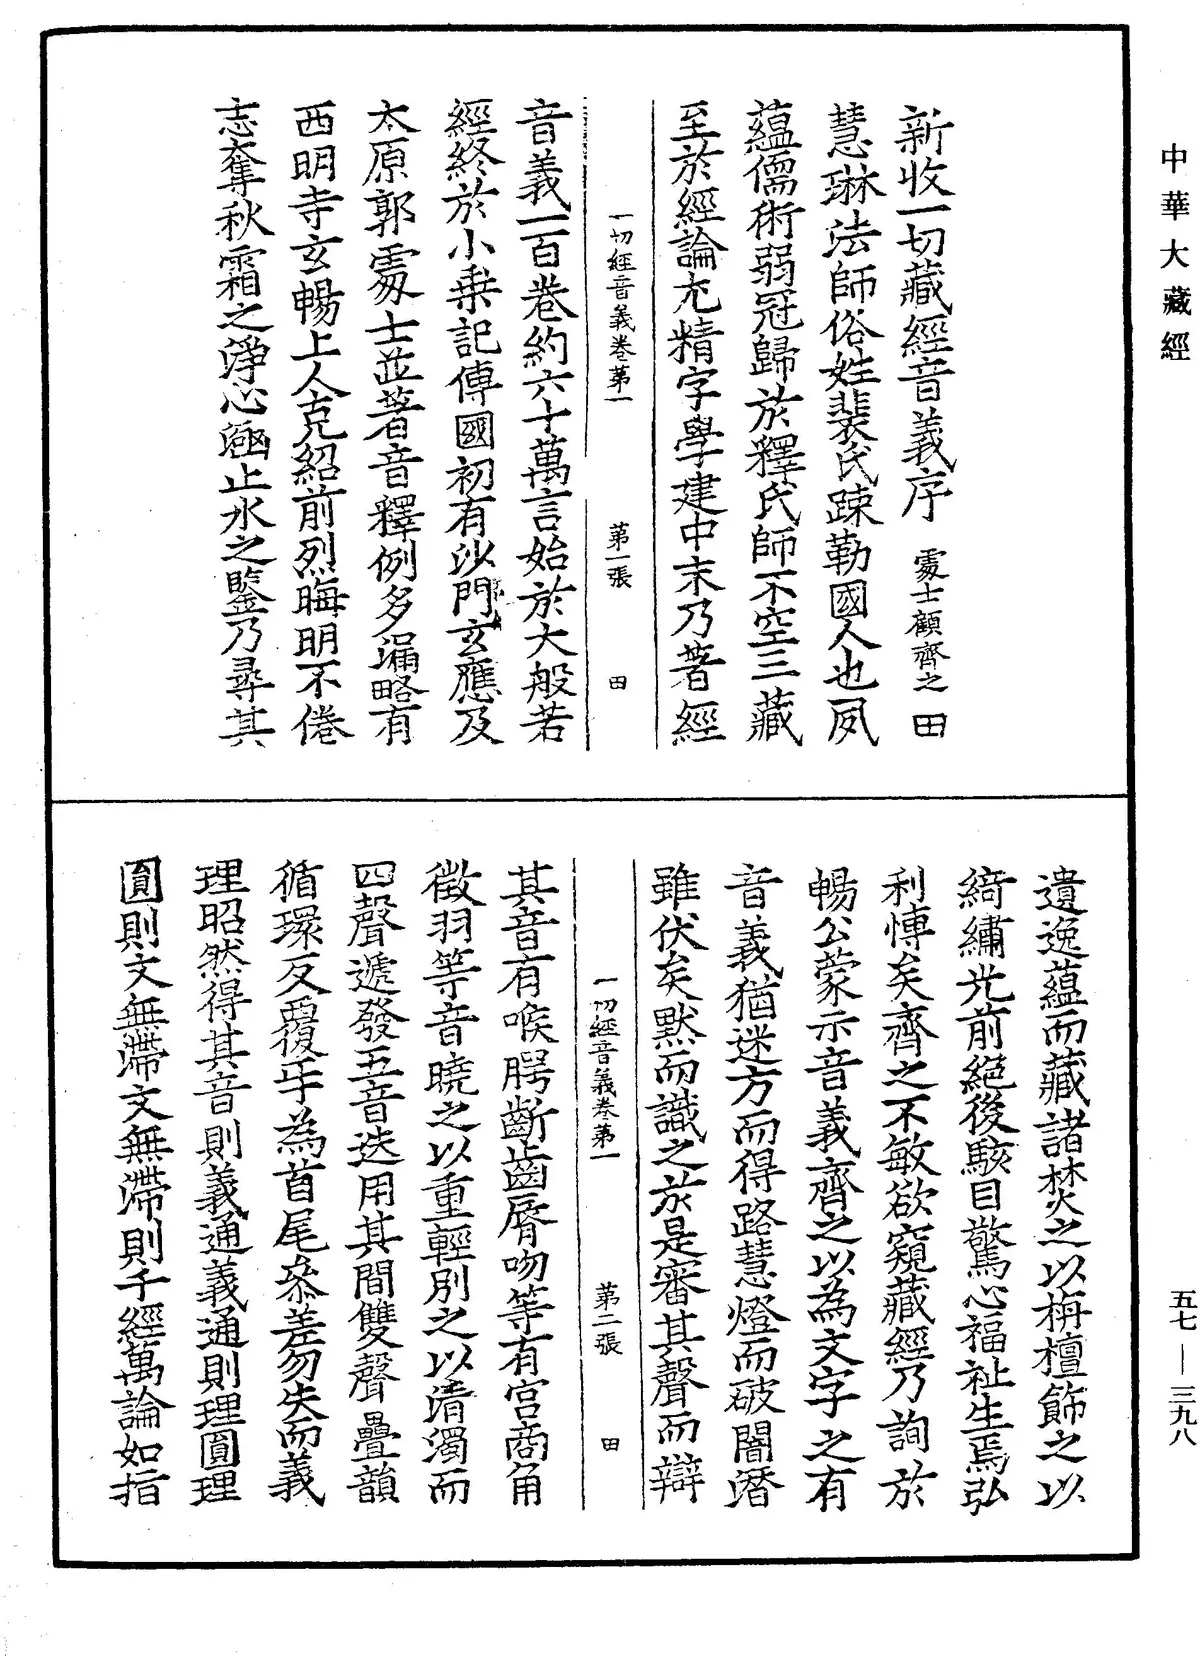 中華大藏經
新收一切藏經音義序 處士顧齊之 田
慧琳法師俗姓裴氏踈勒國人也夙
蘊儒術弱冠歸於釋氏師不空三藏
至於經論尤精字學建中末乃著經
一切經音義卷第一 第一張 田
音義一百卷約六十萬言始於大般若
經終於小乗記傳國初有沙門玄應及
太原郭處士並著音釋例多漏略有
西明寺玄暢上人克紹前烈晦明不倦
志奪秋霜之淨心逾止水之鑒乃尋其
遺逸蘊而藏諸焚之以栴檀飾之以
綺繡光前絕後駭目驚心福祉生焉弘
利慱矣齊之不敏欲窺藏經乃詢於
暢公蒙示音義齊之以為文字之有
音義猶迷方而得路慧燈而破闇潛
雖伏矣默而識之於是審其聲而辯
一切經音義卷第一 第二張 田
其音有喉腭斷齒脣吻等有宮商角
徵羽等音曉之以重輕別之以清濁而
四聲遞發五音迭用其間雙聲疊韻
循環反覆㸦為首尾叅差勿失而義
理昭然得其音則義通義通則理圓理
圓則文無滯文無滯則千經萬論如指
五七—三九八